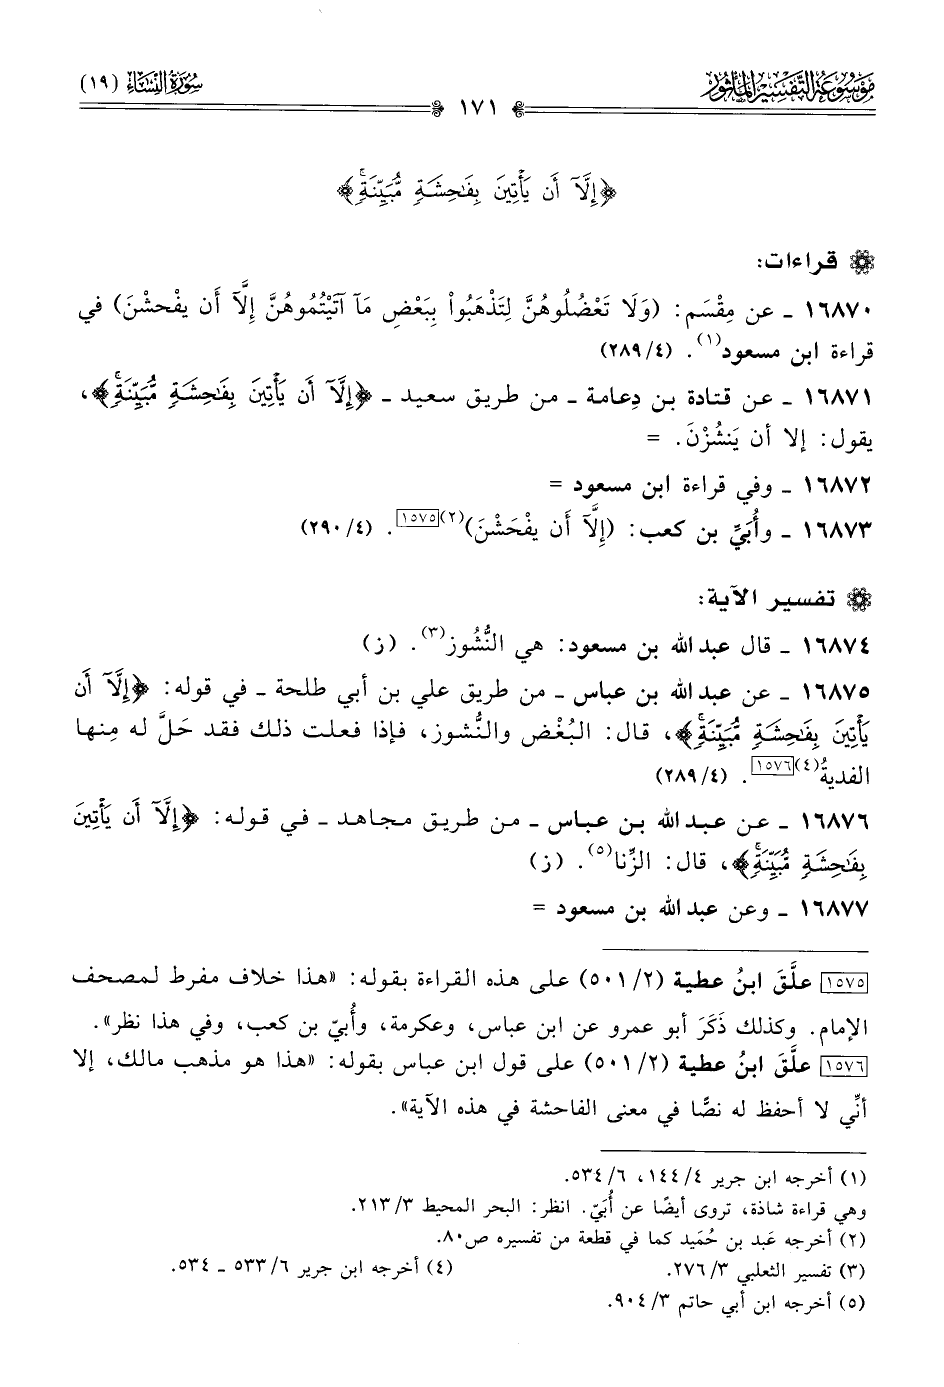 مَوْسُوعَةُ التَّفْسِيرِ المَأْثُور
سُورَةُ النِّسَاءِ (١٩)
١٧١
﴿إِلَّآ أَن يَأْتِينَ بِفَٰحِشَةٍ مُّبَيِّنَةٍۚ﴾
قراءات:
١٦٨٧٠ ـ عن مِقْسَم: (وَلَا تَعْضُلُوهُنَّ لِتَذْهَبُواْ بِبَعْضِ مَآ آتَيْتُمُوهُنَّ إِلَّآ أَن يفْحشْنَ) في
قراءة ابن مسعود(١). (٤/ ٢٨٩)
١٦٨٧١ ـ عن قتادة بن دِعامة ـ من طريق سعيد ـ ﴿إِلَّآ أَن يَأْتِينَ بِفَٰحِشَةٍ مُّبَيِّنَةٍۚ﴾،
يقول: إلا أن يَنشُزْنَ. =
١٦٨٧٢ ـ وفي قراءة ابن مسعود =
١٦٨٧٣ ـ وأُبَيِّ بن كعب: (إِلَّآ أَن يفْحَشْنَ)(٢)[١٥٧٥]. (٤/ ٢٩٠)
تفسير الآية:
١٦٨٧٤ ـ قال عبد الله بن مسعود: هي النُّشُوز(٣). (ز)
١٦٨٧٥ ـ عن عبد الله بن عباس ـ من طريق علي بن أبي طلحة ـ في قوله: ﴿إِلَّآ أَن
يَأْتِينَ بِفَٰحِشَةٍ مُّبَيِّنَةٍۚ﴾، قال: البُغْض والنُّشوز، فإذا فعلت ذلك فقد حَلَّ له مِنها
الفديةُ(٤)[١٥٧٦]. (٤/ ٢٨٩)
١٦٨٧٦ ـ عن عبد الله بن عباس ـ من طريق مجاهد ـ في قوله: ﴿إِلَّآ أَن يَأْتِينَ
بِفَٰحِشَةٍ مُّبَيِّنَةٍۚ﴾، قال: الزِّنا(٥). (ز)
١٦٨٧٧ ـ وعن عبد الله بن مسعود =
[١٥٧٥] علَّقَ ابنُ عطية (٢/ ٥٠١) على هذه القراءة بقوله: «هذا خلاف مفرط لمصحف
الإمام. وكذلك ذَكَرَ أبو عمرو عن ابن عباس، وعكرمة، وأُبيّ بن كعب، وفي هذا نظر».
[١٥٧٦] علَّقَ ابنُ عطية (٢/ ٥٠١) على قول ابن عباس بقوله: «هذا هو مذهب مالك، إلا
أنِّي لا أحفظ له نصًّا في معنى الفاحشة في هذه الآية».
(١) أخرجه ابن جرير ٤/ ١٤٤، ٦/ ٥٣٤.
وهي قراءة شاذة، تروى أيضًا عن أُبَيّ. انظر: البحر المحيط ٣/ ٢١٣.
(٢) أخرجه عَبد بن حُمَيد كما في قطعة من تفسيره ص٨٠.
(٣) تفسير الثعلبي ٣/ ٢٧٦.
(٤) أخرجه ابن جرير ٦/ ٥٣٣ ـ ٥٣٤.
(٥) أخرجه ابن أبي حاتم ٣/ ٩٠٤.